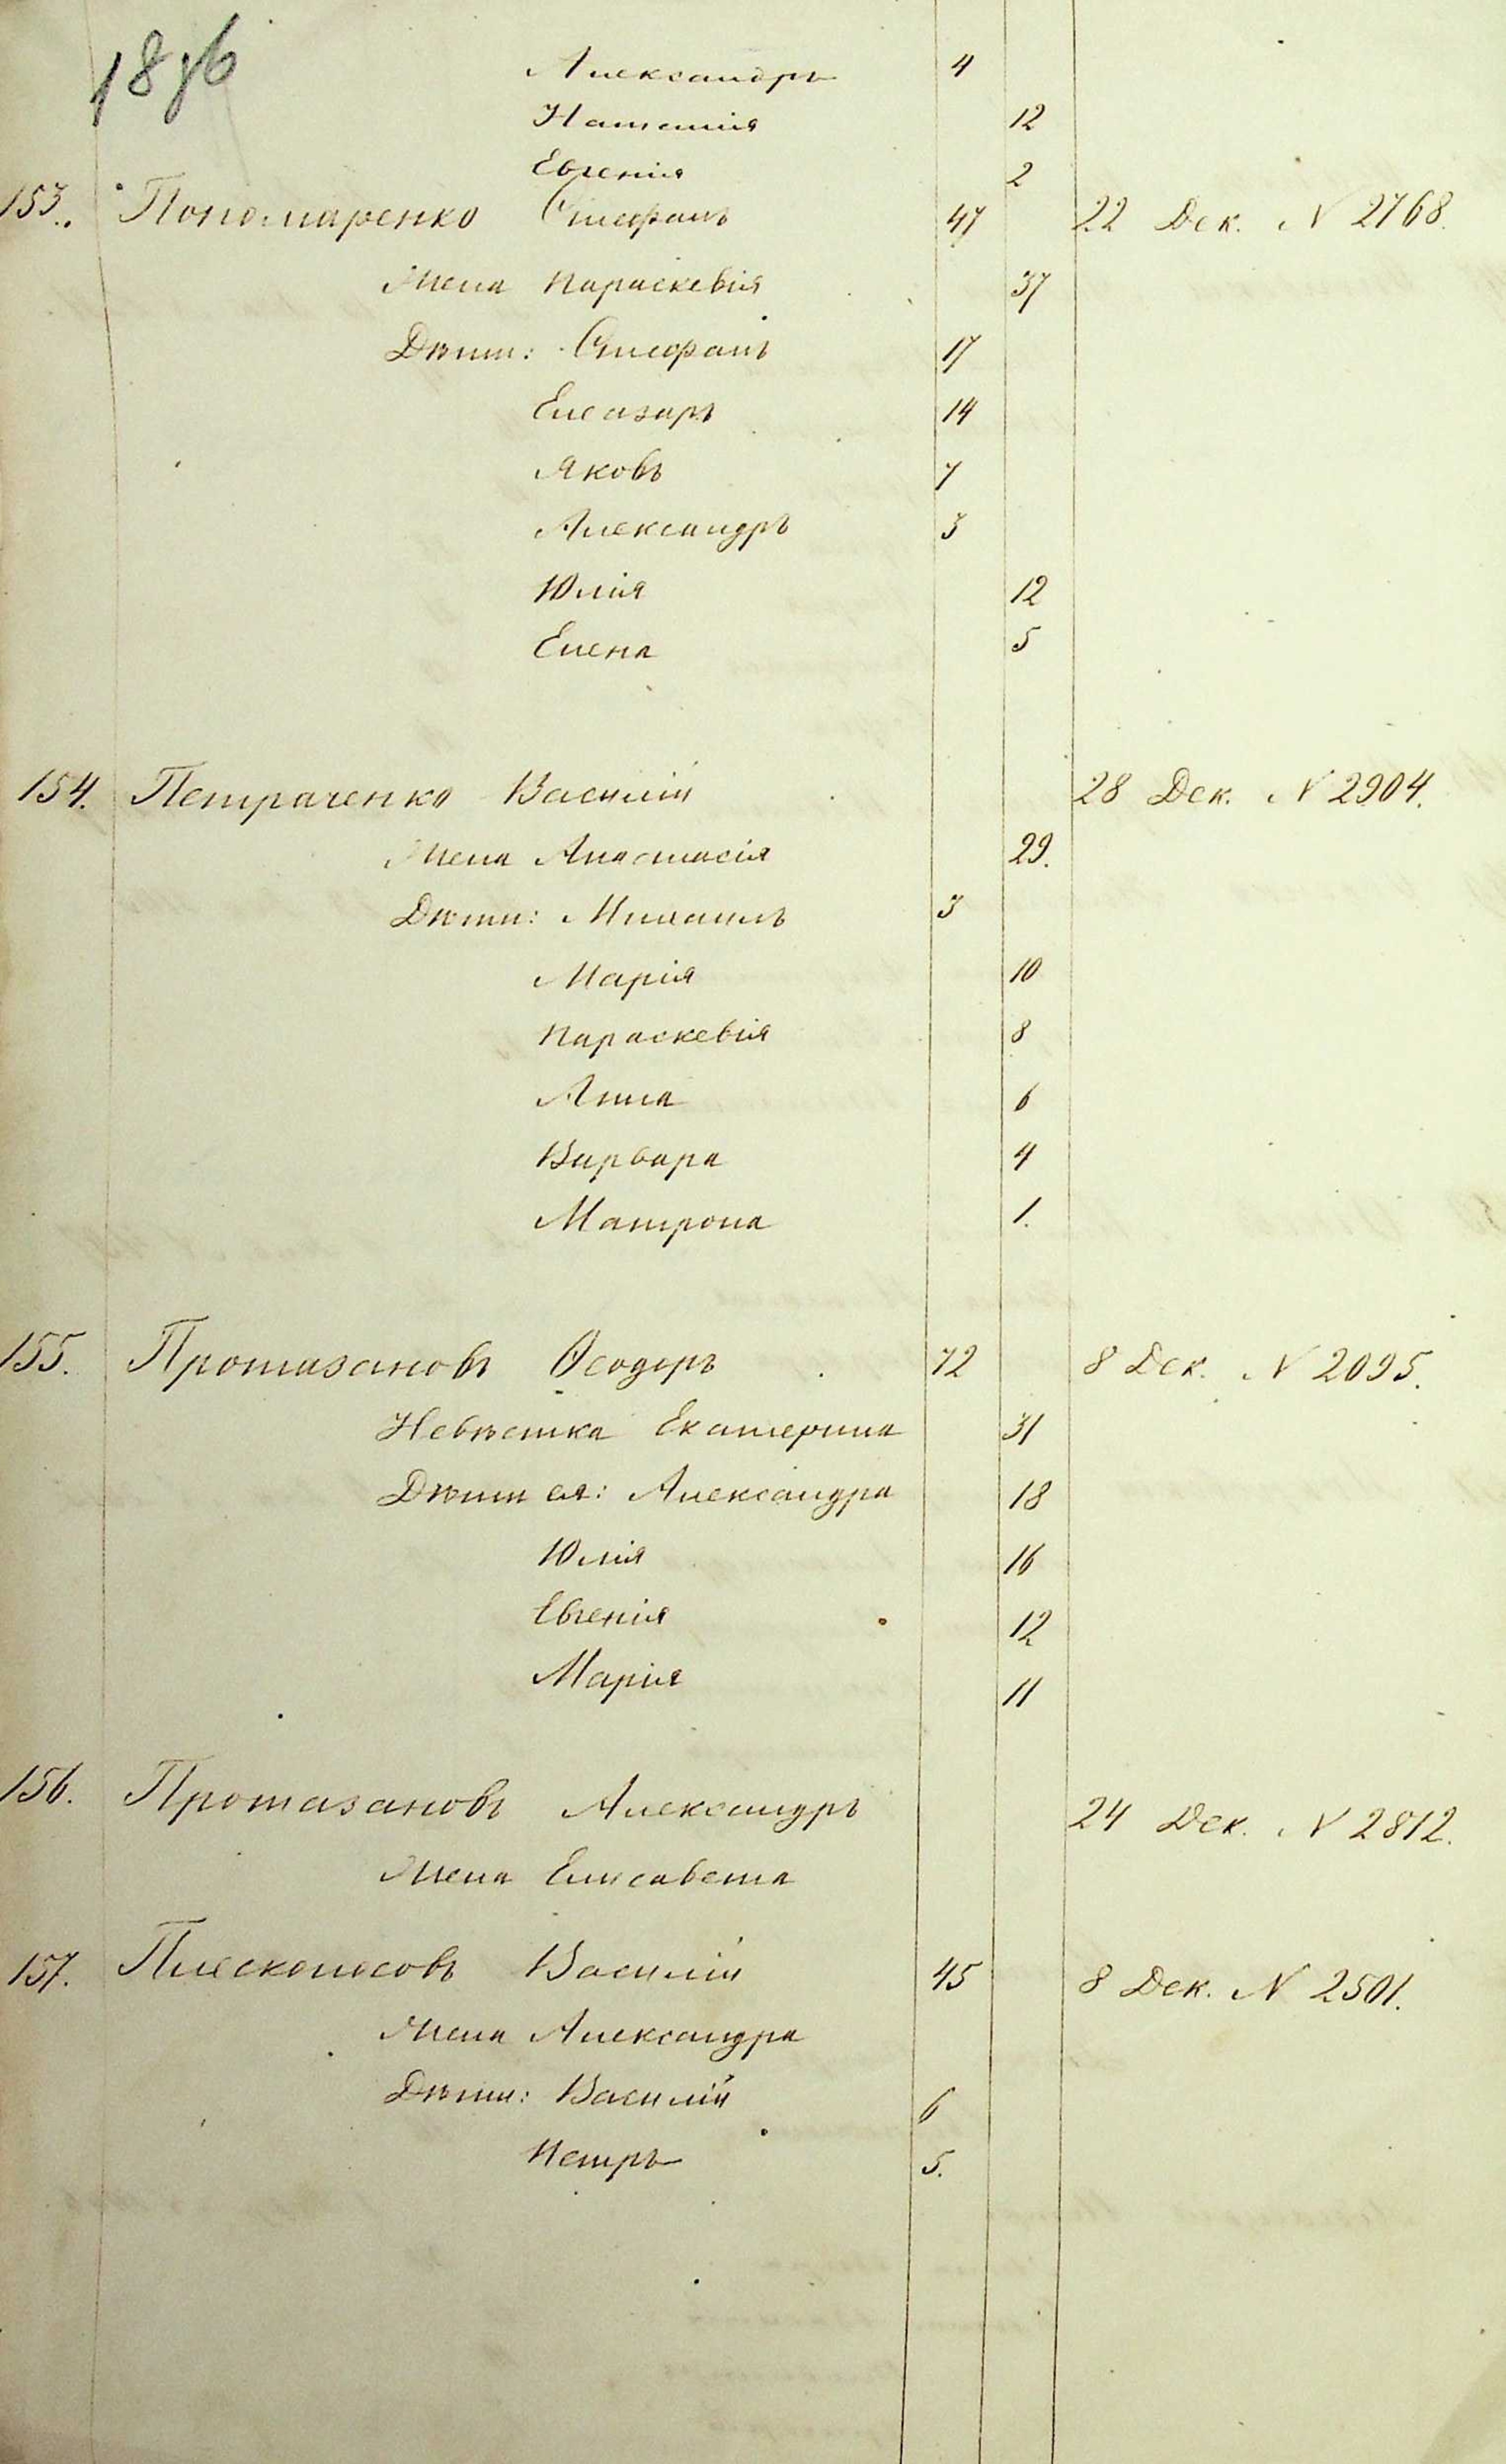 Александръ 4
Наталія 12
Евгенія 2
153. Пономаренко Стефанъ 47 22 Дек. N 2768.
Жена Параскевія 37
Дѣти: Стефанъ 17
Елеазаръ 14
Яковъ 7
Александръ 3
Юлія 12
Елена 5
154. Петраченко Василій 28 Дек. N 2904.
Жена Анастасія 29.
Дѣти: Михаилъ 3
Марія 10
Параскевія 8
Анна 6
Варвара 4
Матрона 1.
155. Протазановъ Ѳеодоръ 72 8 Дек. N 2095.
Невѣстка Екатерина 31
Дѣти ея: Александра 18
Юлія 16
Евгенія 12
Марія 11
156. Протазановъ Александръ 24 Дек. N 2812.
Жена Елисавета
157. Плесконосовъ Василій 45 8 Дек. N 2501.
Жена Александра
Дѣти: Василій 6
Петръ 5.